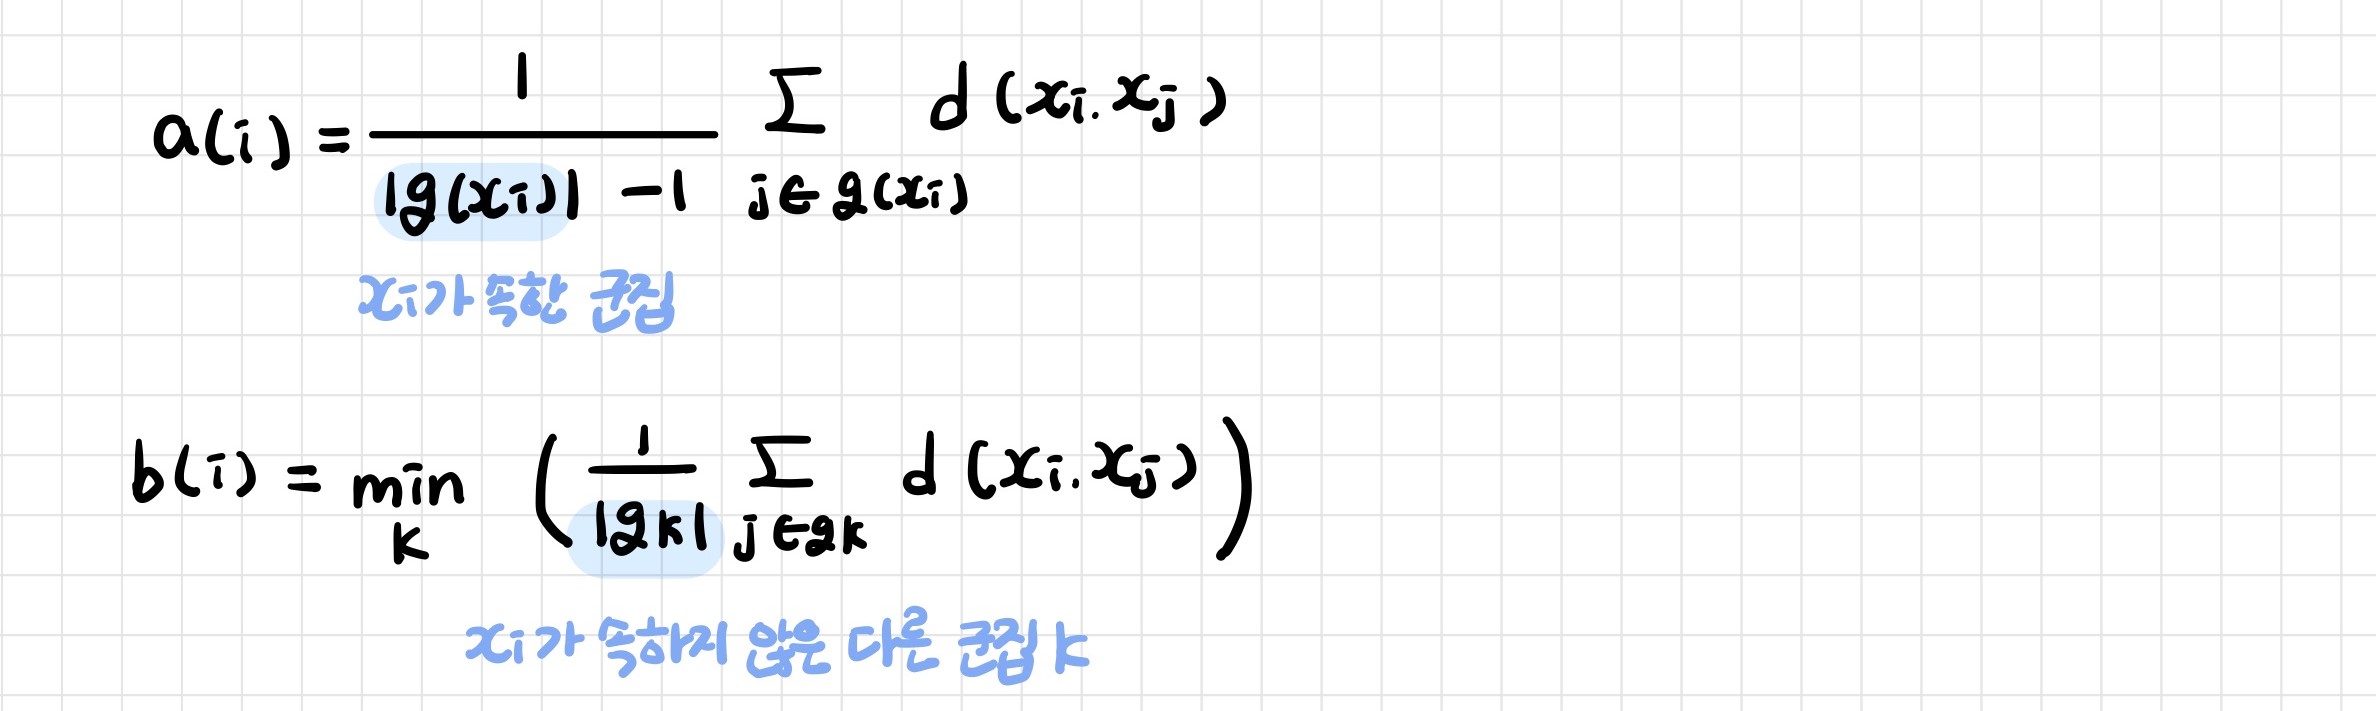 a(i) = 1 / |g(xi)| -1 Σ j∈g(xi) d(xi.xj)
xi가 속한 군집
b(i) = min k ( 1 / |gk| Σ j∈gk d(xi.xj) )
xi가 속하지 않은 다른 군집 k